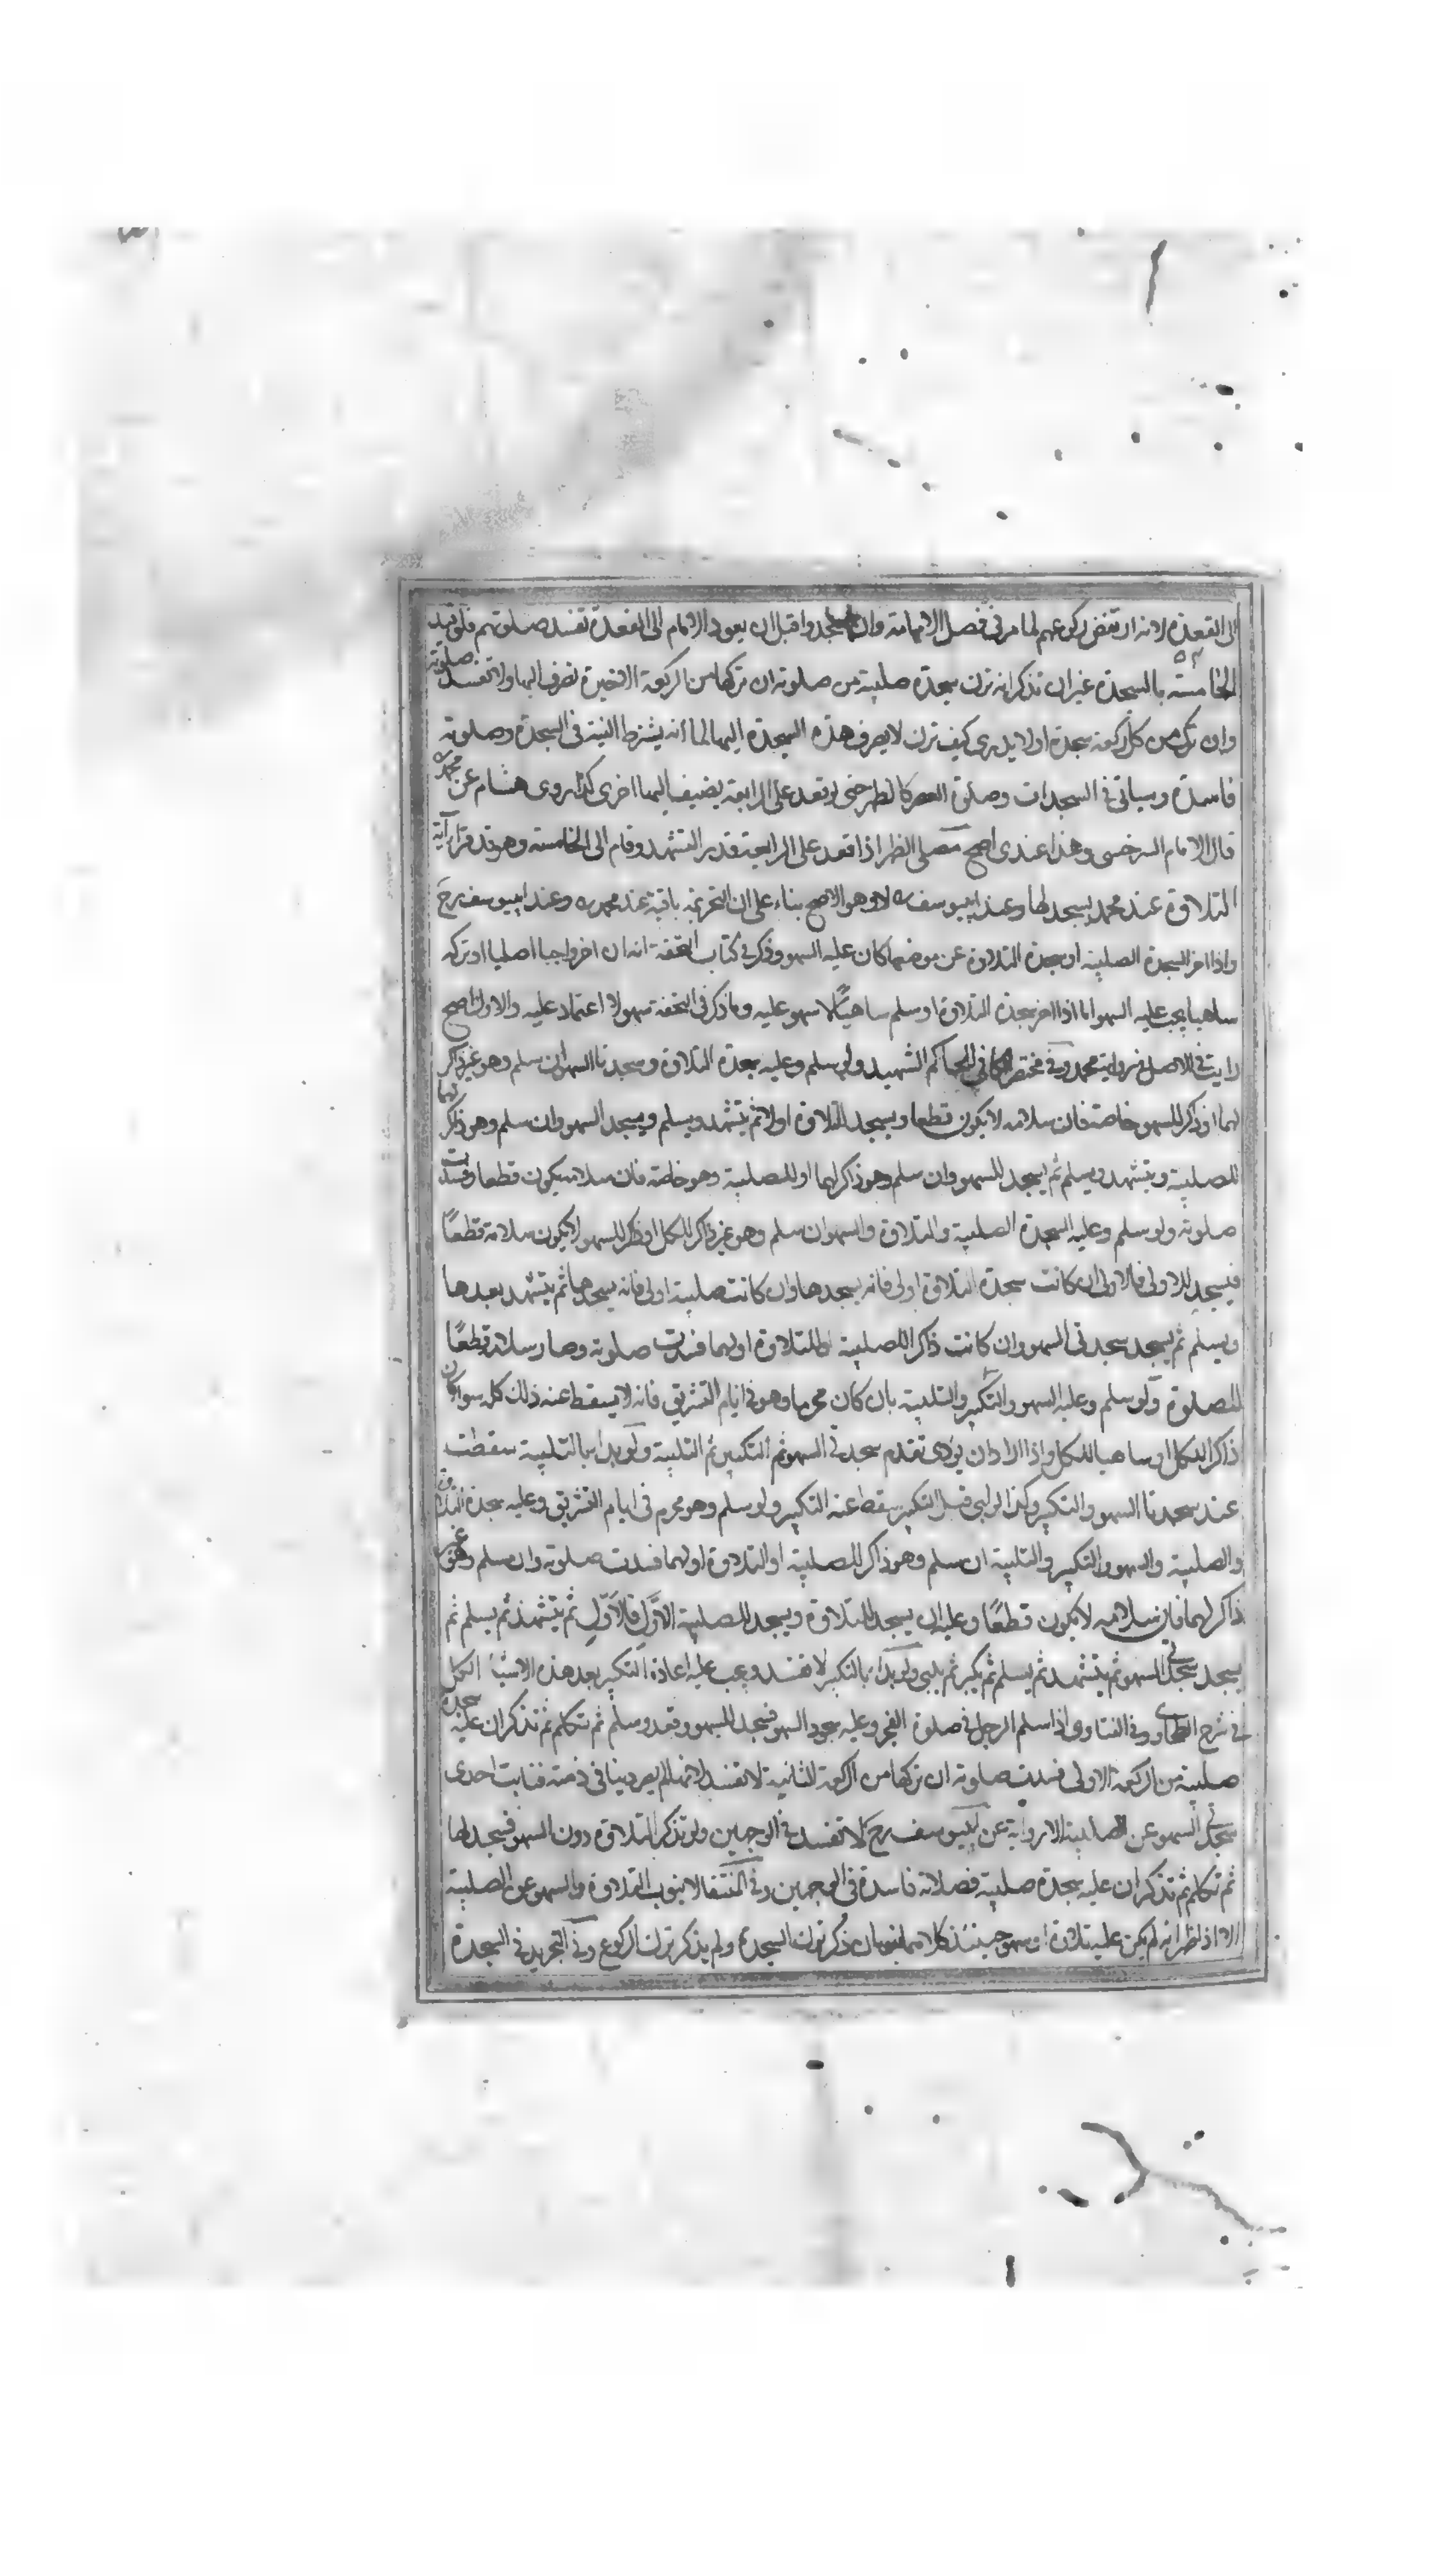 الى القعدة لانه ارتفض ركوعهم لما مر في فصل الامامة وان سجدوا قبل ان يعود الامام الى القعدة تفسد صلوتهم فلو قيد
الخامسة بالسجدة غير ان تذكر انه ترك سجدة صلبية من صلوته ان تركها من الركعة الاخيرة تصرف اليها ولا تفسد صلوته
وان ترك من كل ركعة سجدة او لا يدرى كيف ترك لا يصرف هذه السجدة اليها لما انه يشترط النية في السجدة وصلوته
فاسدة وسياتى في السجدات وصلوة العصر كالظهر حتى لو قعد على الرابعة يضيف اليها اخرى كذا روى هشام عن محمد
قال الامام السرخسى وهذا عندى اصح مصلى الظهر اذا قعد على الرابعة قدر التشهد وقام الى الخامسة وهو قد قرا اية
التلاوة عند محمد يسجد لها وعند ابيوسف لا وهو الاصح بناء على ان التحريمة باقية عند محمد وعند ابيوسف رح
واذا اخر السجدة الصلبية او سجدة التلاوة عن موضعها كان عليه السهو وذكر في كتاب التحفة انه ان اخر واجبا اصليا او تركه
ساهيا يجب عليه السهو اما اذا اخر سجدة التلاوة او سلم ساهيًا لا سهو عليه وما ذكر في التحفة سهو لا اعتماد عليه والاول اصح
رايت في الاصل في رواية محمد وفي مختصر الكافى للحاكم الشهيد ولو سلم وعليه سجدة التلاوة وسجدتا السهو ان سلم وهو غير ذاكر
لهما او ذاكر للسهو خاصة فان سلامه لا يكون قطعا ويسجد للتلاوة اولا ثم يتشهد ويسلم ويسجد السهو وان سلم وهو ذاكر لهما
للصلبية ويتشهد ويسلم ثم يسجد للسهو وان سلم وهو ذاكر لهما او للصلبية وهو خاصة فان سلامه يكون قطعا وفسدت
صلوته ولو سلم وعليه السجدة الصلبية والتلاوة والسهو ان سلم وهو غير ذاكر للكل او ذاكر للسهو لا يكون سلامه قطعًا
فيسجد للاولى فالاولى ان كانت سجدة التلاوة اولى فانه يسجدها وان كانت صلبية اولى فانه يسجدها ثم يتشهد بعدها
ويسلم ثم يسجد سجدتى السهو وان كانت ذاكرا للصلبية او للتلاوة او لهما فسدت صلوته وصار سلامه قطعًا
للصلوة ولو سلم وعليه السهو والتكبير والتلبية بان كان محرما وهو في ايام التشريق فانه لا يسقط عنه ذلك كله سواء كان
ذاكرا للكل او ساهيا للكل واذا اراد ان يؤدى تقدم سجدتى السهو ثم التكبير ثم التلبية ولو بدا بالتلبية سقطت
عنه سجدتا السهو والتكبير وكذا لو لبى قبل التكبير سقط عنه التكبير ولو سلم وهو محرم في ايام التشريق وعليه سجدة التلاوة
والصلبية والسهو والتكبير والتلبية ان سلم وهو ذاكر للصلبية او التلاوة او لهما فسدت صلوته وان سلم وهو غير
ذاكر لهما فان سلامه لا يكون قطعًا وعليه ان يسجد للتلاوة ويسجد للصلبية الاوّل فالاوّل ثم يتشهد ثم يسلم ثم
يسجد سجدتى السهو ثم يتشهد ثم يسلم ثم يكبر ثم يلبى ولو بدا بالتكبير لا تفسد ويجب عليه اعادة التكبير بعد هذه الاشيا الكل
في شرح الطحاوى وفي الفتاوى اذا سلم الرجل في صلوة الفجر وعليه سجود السهو فسجد للسهو وقعد وسلم ثم تكلم ثم تذكر ان عليه سجدة
صلبية من الركعة الاولى فسدت صلوته ان تركها من الركعة الثانية لا تفسد لانها لم يصر دينا في ذمته فنابت احدى
سجدتى السهو عن الصلبية الا رواية عن ابيوسف رح لا تفسد في الوجهين ولو تذكر التلاوة دون السهو فسجد لها
ثم تكلم ثم تذكر ان عليه سجدة صلبية فصلاته فاسدة في الوجهين وفي المنتقى لا ينوب التلاوة والسهو عن الصلبية
الا اذا ظهر انه لم يكن عليه تلاوة او سهو حينئذ كلاهما ينوبان ذكر ترك السجدة ولم يذكر ترك الركوع وفي التجريد في السجدة